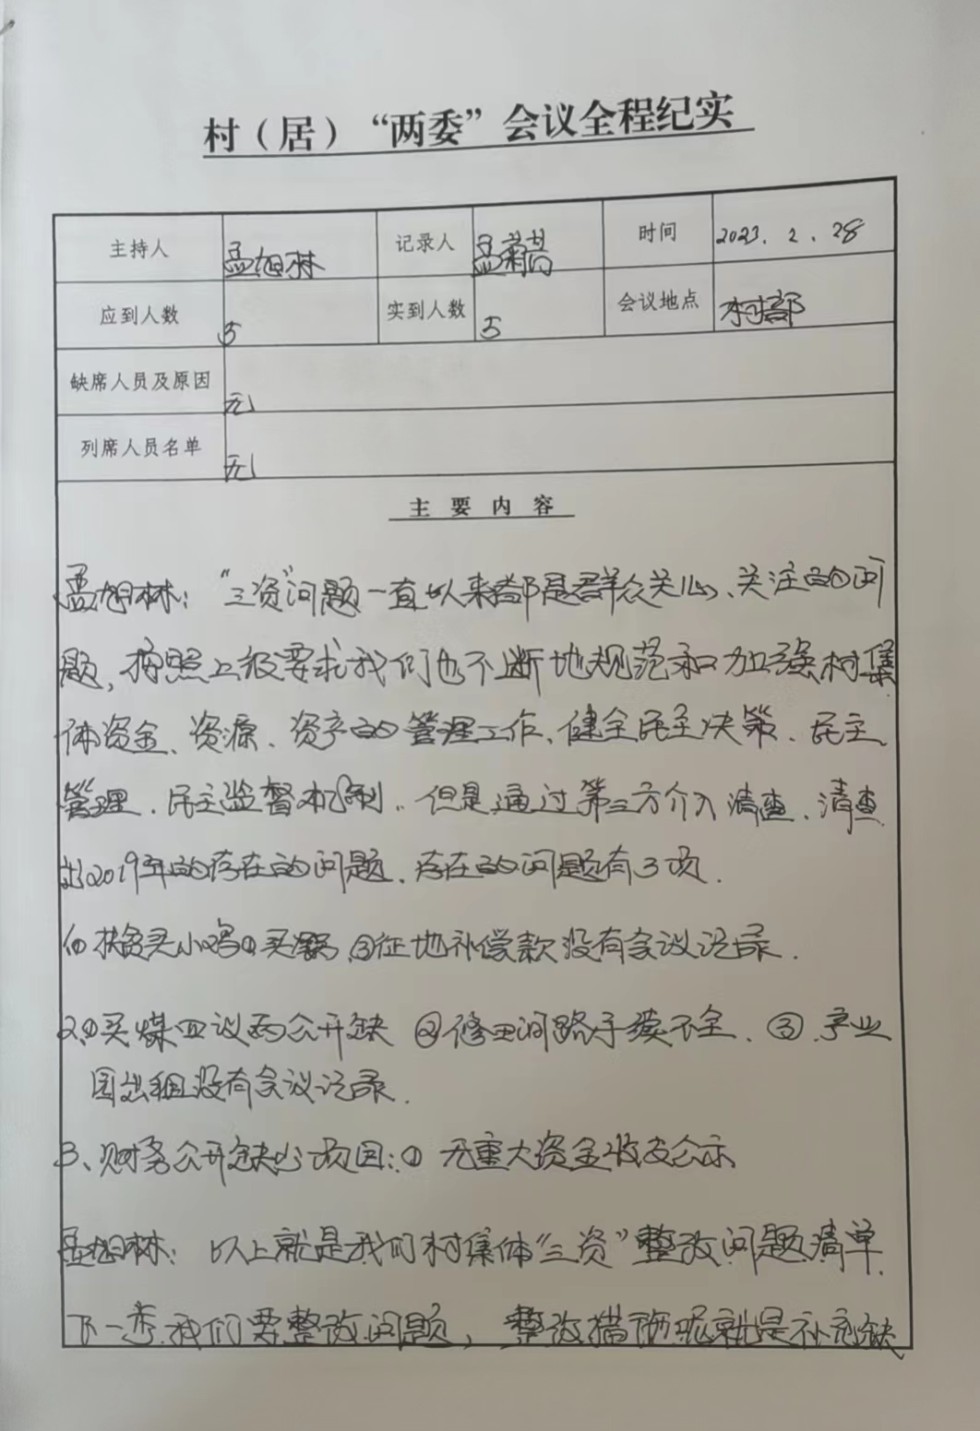 村（居）“两委”会议全程纪实
主持人 孟旭林 记录人 孟菊 时间 2023.2.28
应到人数 5 实到人数 5 会议地点 村部
缺席人员及原因 无
列席人员名单 无
主要内容
孟旭林：“三资”问题一直以来都是群众关心、关注的问
题，按照上级要求我们也不断地规范和加强村集
体资金、资源、资产的管理工作、健全民主决策、民主
管理、民主监督机制。但是通过第三方介入清查、清查
出2019年的存在的问题、存在的问题有3项.
1、扶贫买小鸡①买 ③征地补偿款没有会议记录.
2、①买煤四议两公开缺 ②修田间路手续不全、③、产业
园出租没有会议记录.
3、财务公开缺少项目：① 无重大资金收支公示
孟旭林：以上就是我们村集体“三资”整改问题清单.
下一步我们要整改问题，整改措施呢就是补充缺